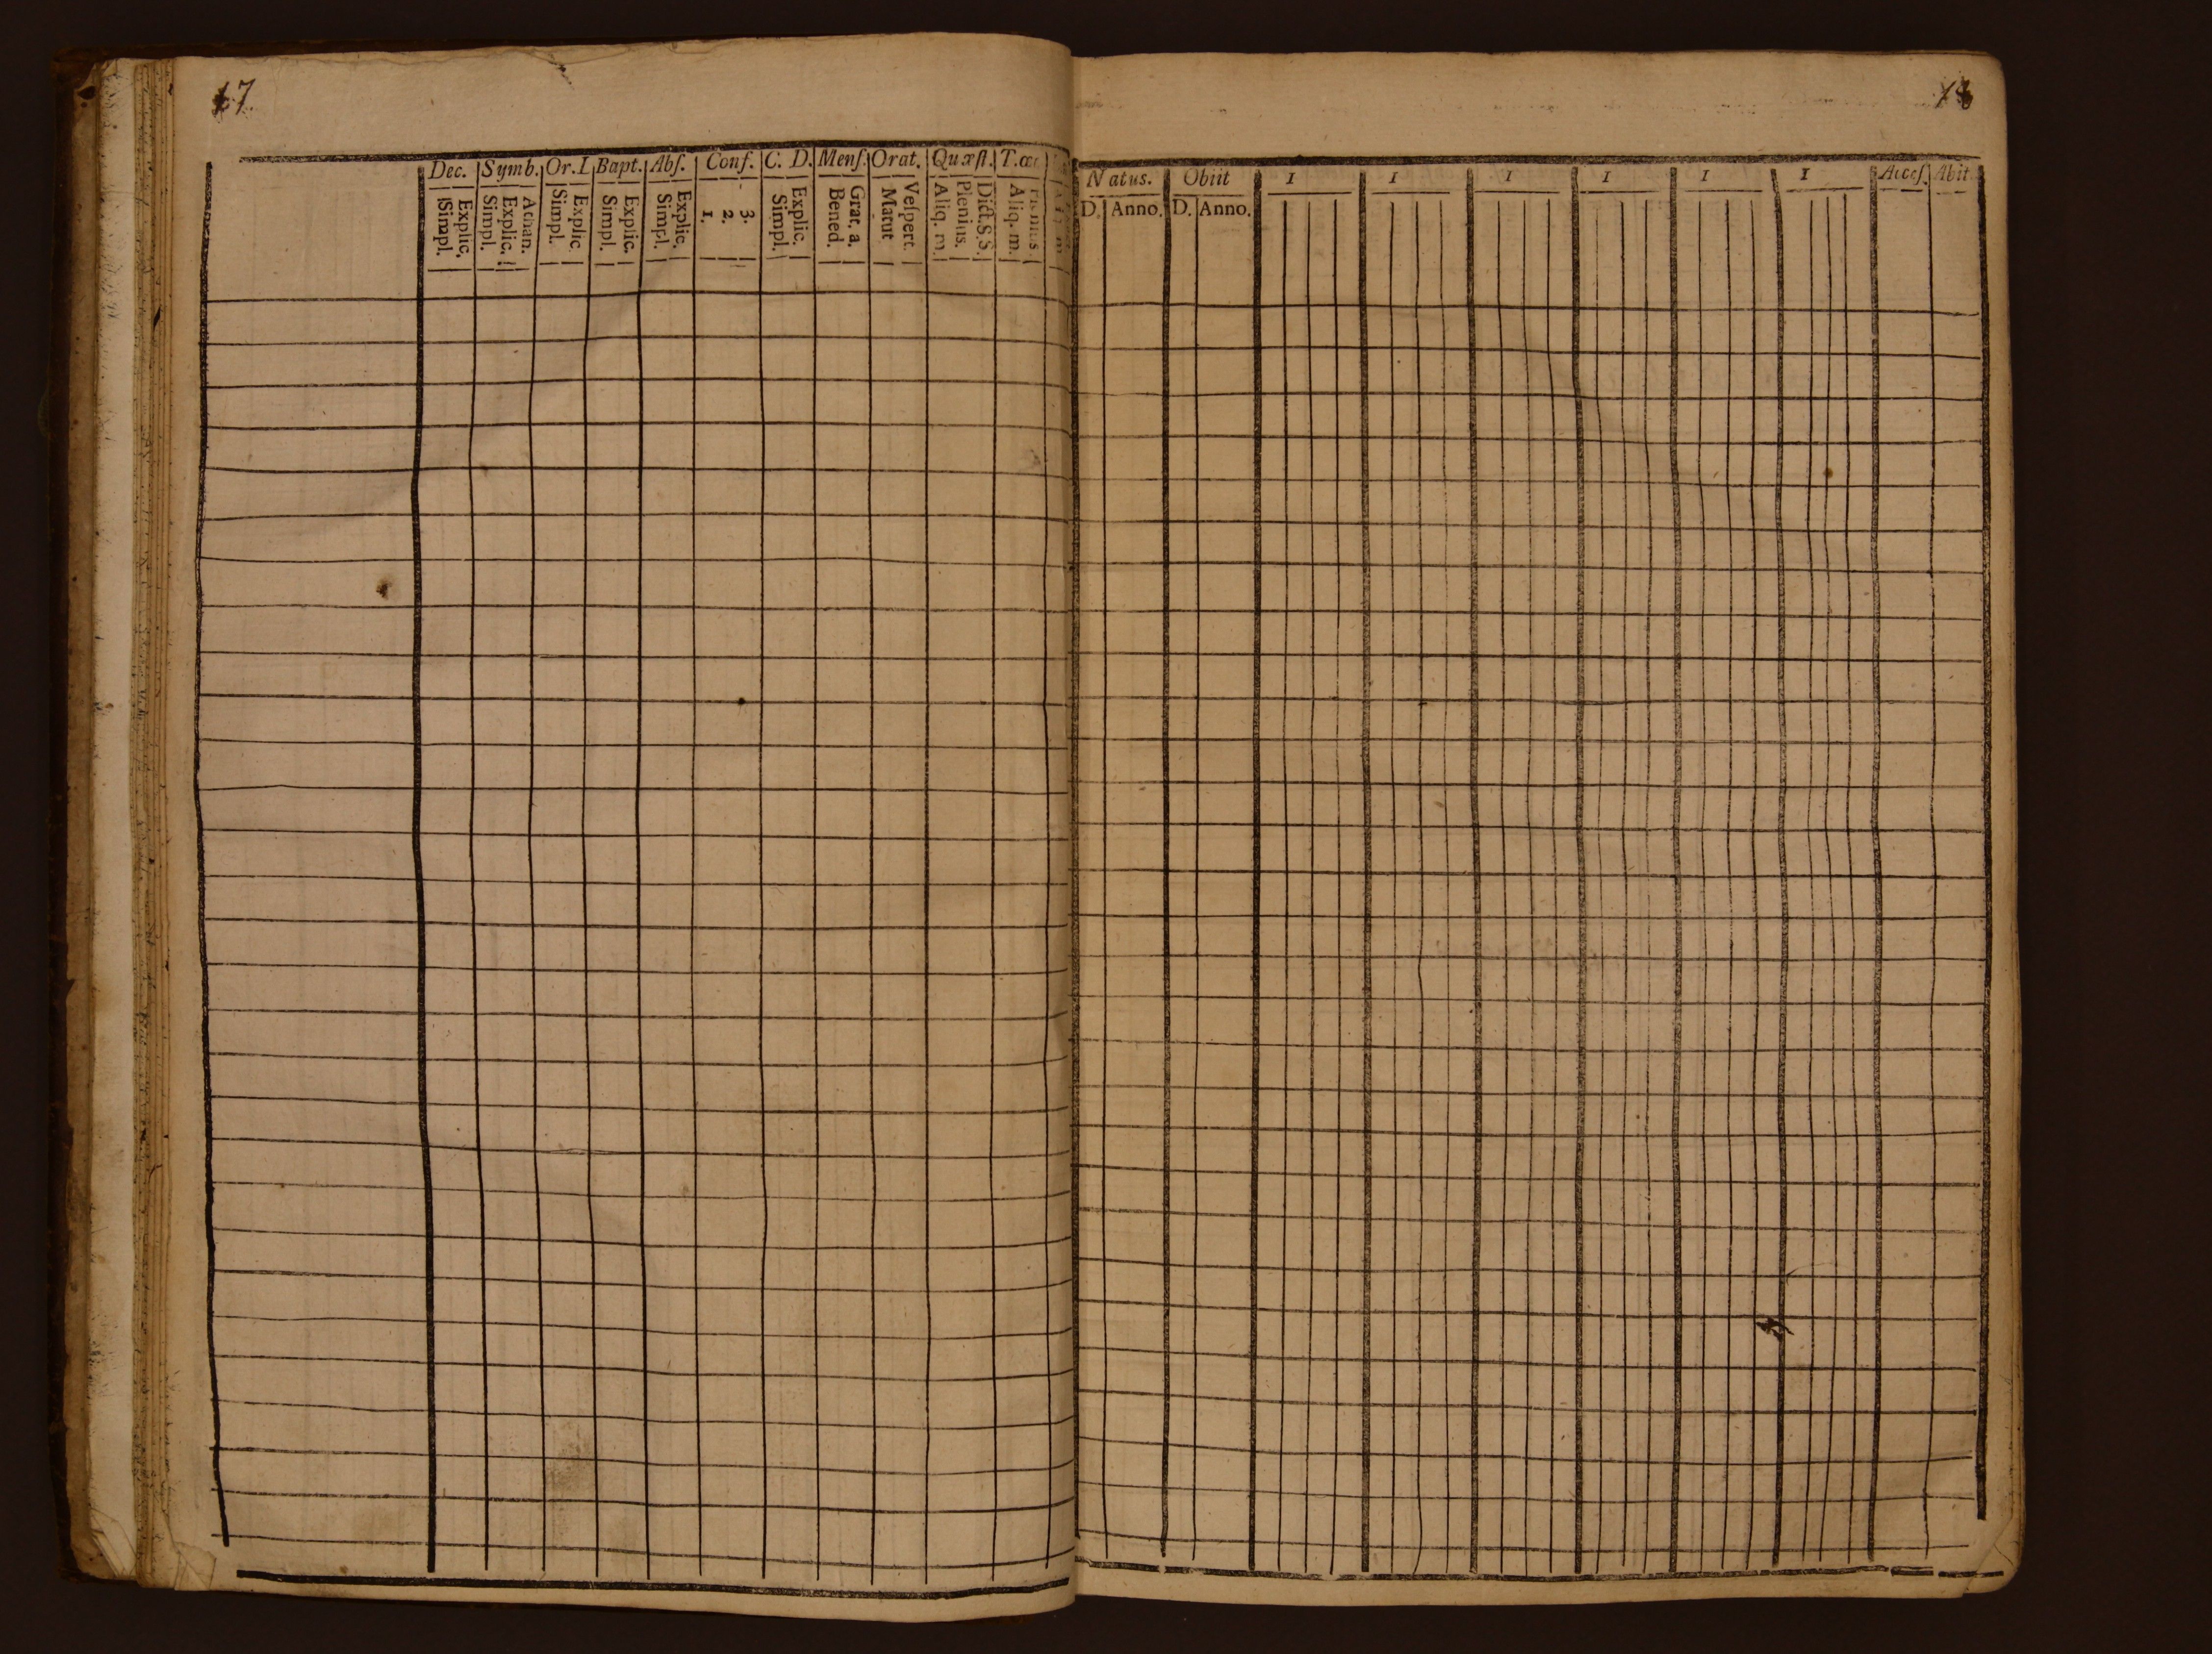 17
18
Dec. Symb. Or. I. Bapt. Abſ. Conf. C. D. Menſ. Orat. Quæſt. T. œc
Simpl. Explic. Simpl. Explic. Athan. Simpl. Explic. Simpl. Explic. Simpl. Explic. 1. 2. 3. Simpl. Explic. Bened. Grat. a. Matut Veſpert. Aliq. m. Plenius. Dict. S. S. Aliq. m.
Natus. Obiit I I I I I I Acceſ. Abit
D. Anno. D. Anno.